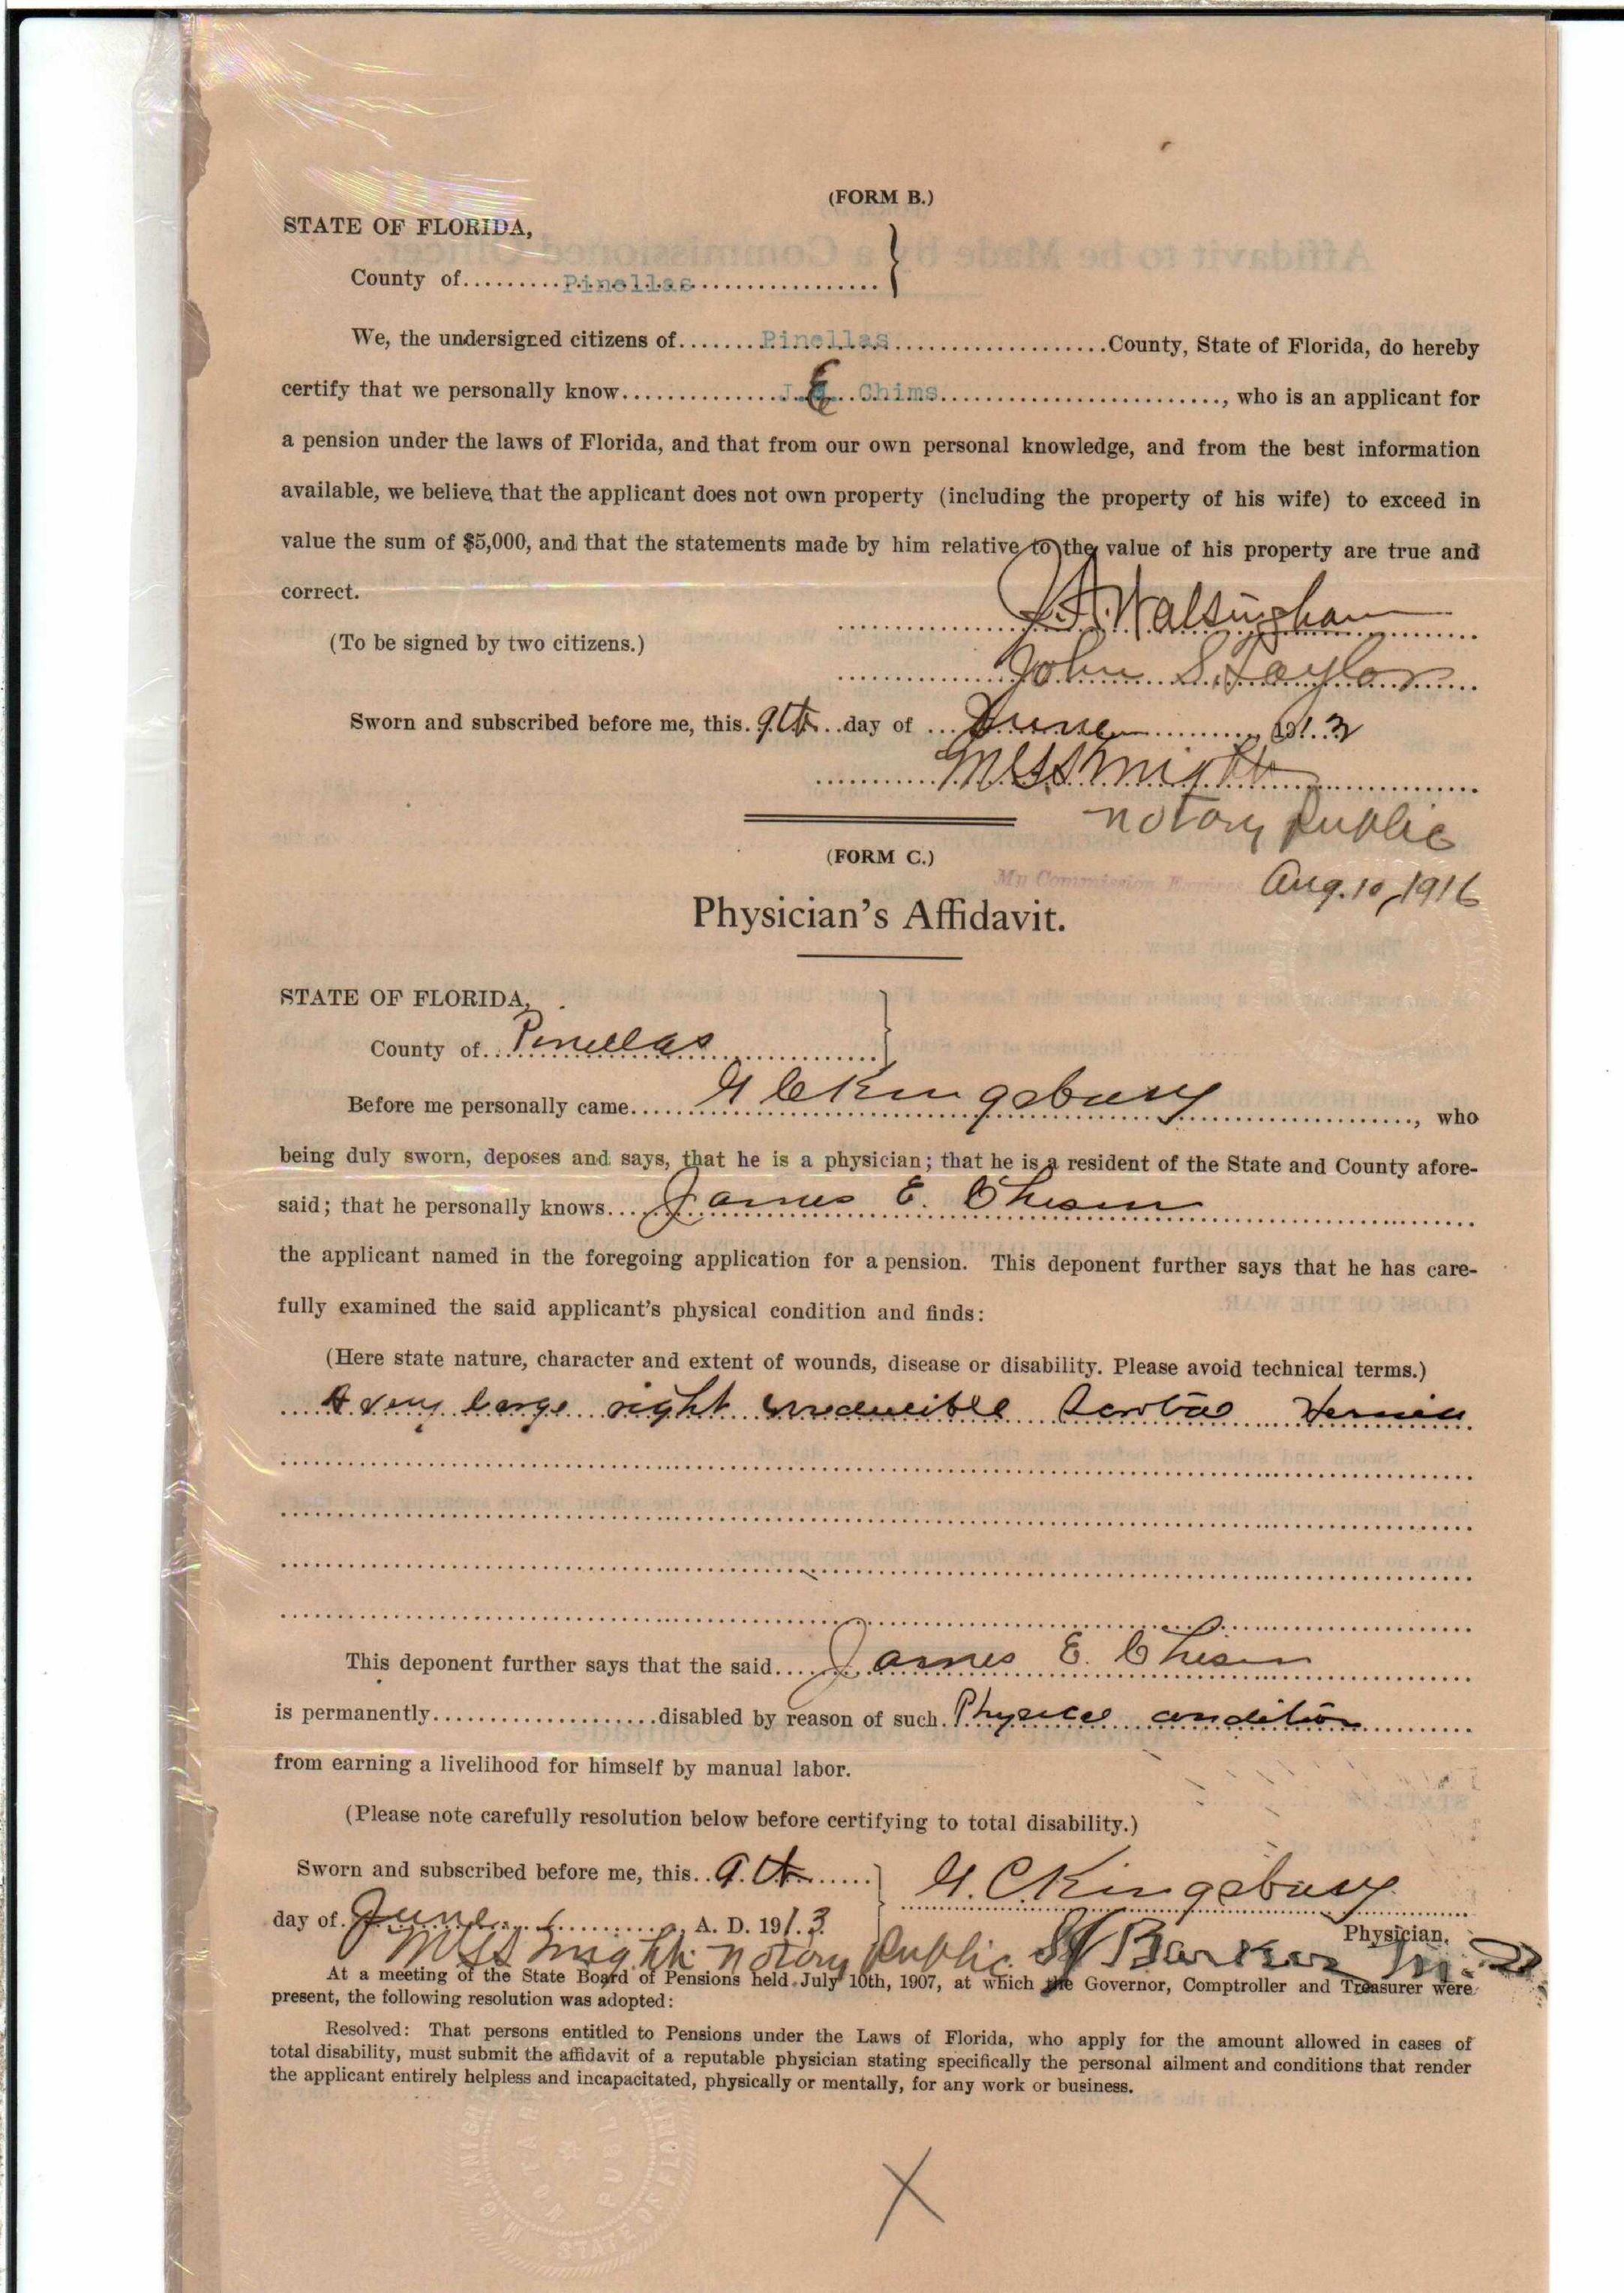 (FORM B.)
STATE OF FLORIDA,
County of Pinellas
We, the undersigned citizens of Pinellas County, State of Florida, do hereby
certify that we personally know J. E. Chims, who is an applicant for
a pension under the laws of Florida, and that from our own personal knowledge, and from the best information
available, we believe that the applicant does not own property (including the property of his wife) to exceed in
value the sum of $5,000, and that the statements made by him relative to the value of his property are true and
correct.
Walsingham
(To be signed by two citizens.)
John S. Taylor
Sworn and subscribed before me, this 9th day of June, 1913
notary public
(FORM C.)
My Commission Expires Aug. 10, 1916
Physician's Affidavit.
STATE OF FLORIDA,
County of Pinellas
Before me personally came G C Kingsbury, who
being duly sworn, deposes and says, that he is a physician; that he is a resident of the State and County afore-
said; that he personally knows James E. Chism
the applicant named in the foregoing application for a pension. This deponent further says that he has care-
fully examined the said applicant's physical condition and finds:
(Here state nature, character and extent of wounds, disease or disability. Please avoid technical terms.)
A very large right irreducible Scrotal Hernia
This deponent further says that the said James E. Chism
is permanently disabled by reason of such Physical condition
from earning a livelihood for himself by manual labor.
(Please note carefully resolution below before certifying to total disability.)
Sworn and subscribed before me, this 9th
G. C. Kingsbury
day of June, A. D. 1913
Physician.
notary public Barker M.D.
At a meeting of the State Board of Pensions held July 10th, 1907, at which the Governor, Comptroller and Treasurer were
present, the following resolution was adopted:
Resolved: That persons entitled to Pensions under the Laws of Florida, who apply for the amount allowed in cases of
total disability, must submit the affidavit of a reputable physician stating specifically the personal ailment and conditions that render
the applicant entirely helpless and incapacitated, physically or mentally, for any work or business.
X